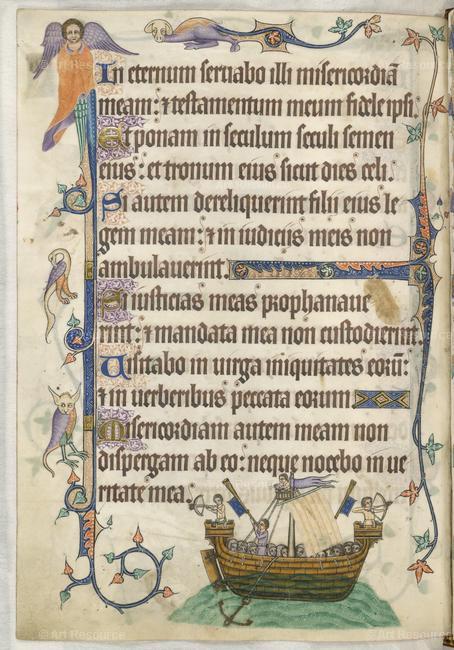 In eternum seruabo illi misericordiã
meam: ⁊ testamentum meum fidele ipsi.
Et ponam in seculum seculi semen
eius: et tronum eius sicut dies celi.
Si autem dereliquerint filii eius le
gem meam: ⁊ in iudicijs meis non
ambulauerint.
Si iusticias meas prophanaue
rint: ⁊ mandata mea non custodierint.
Uisitabo in uirga iniquitates eorũ:
⁊ in uerberibus peccata eorum
Misericordiam autem meam non
dispergam ab eo: neque nocebo in ue
ritate mea.
© Art Resource